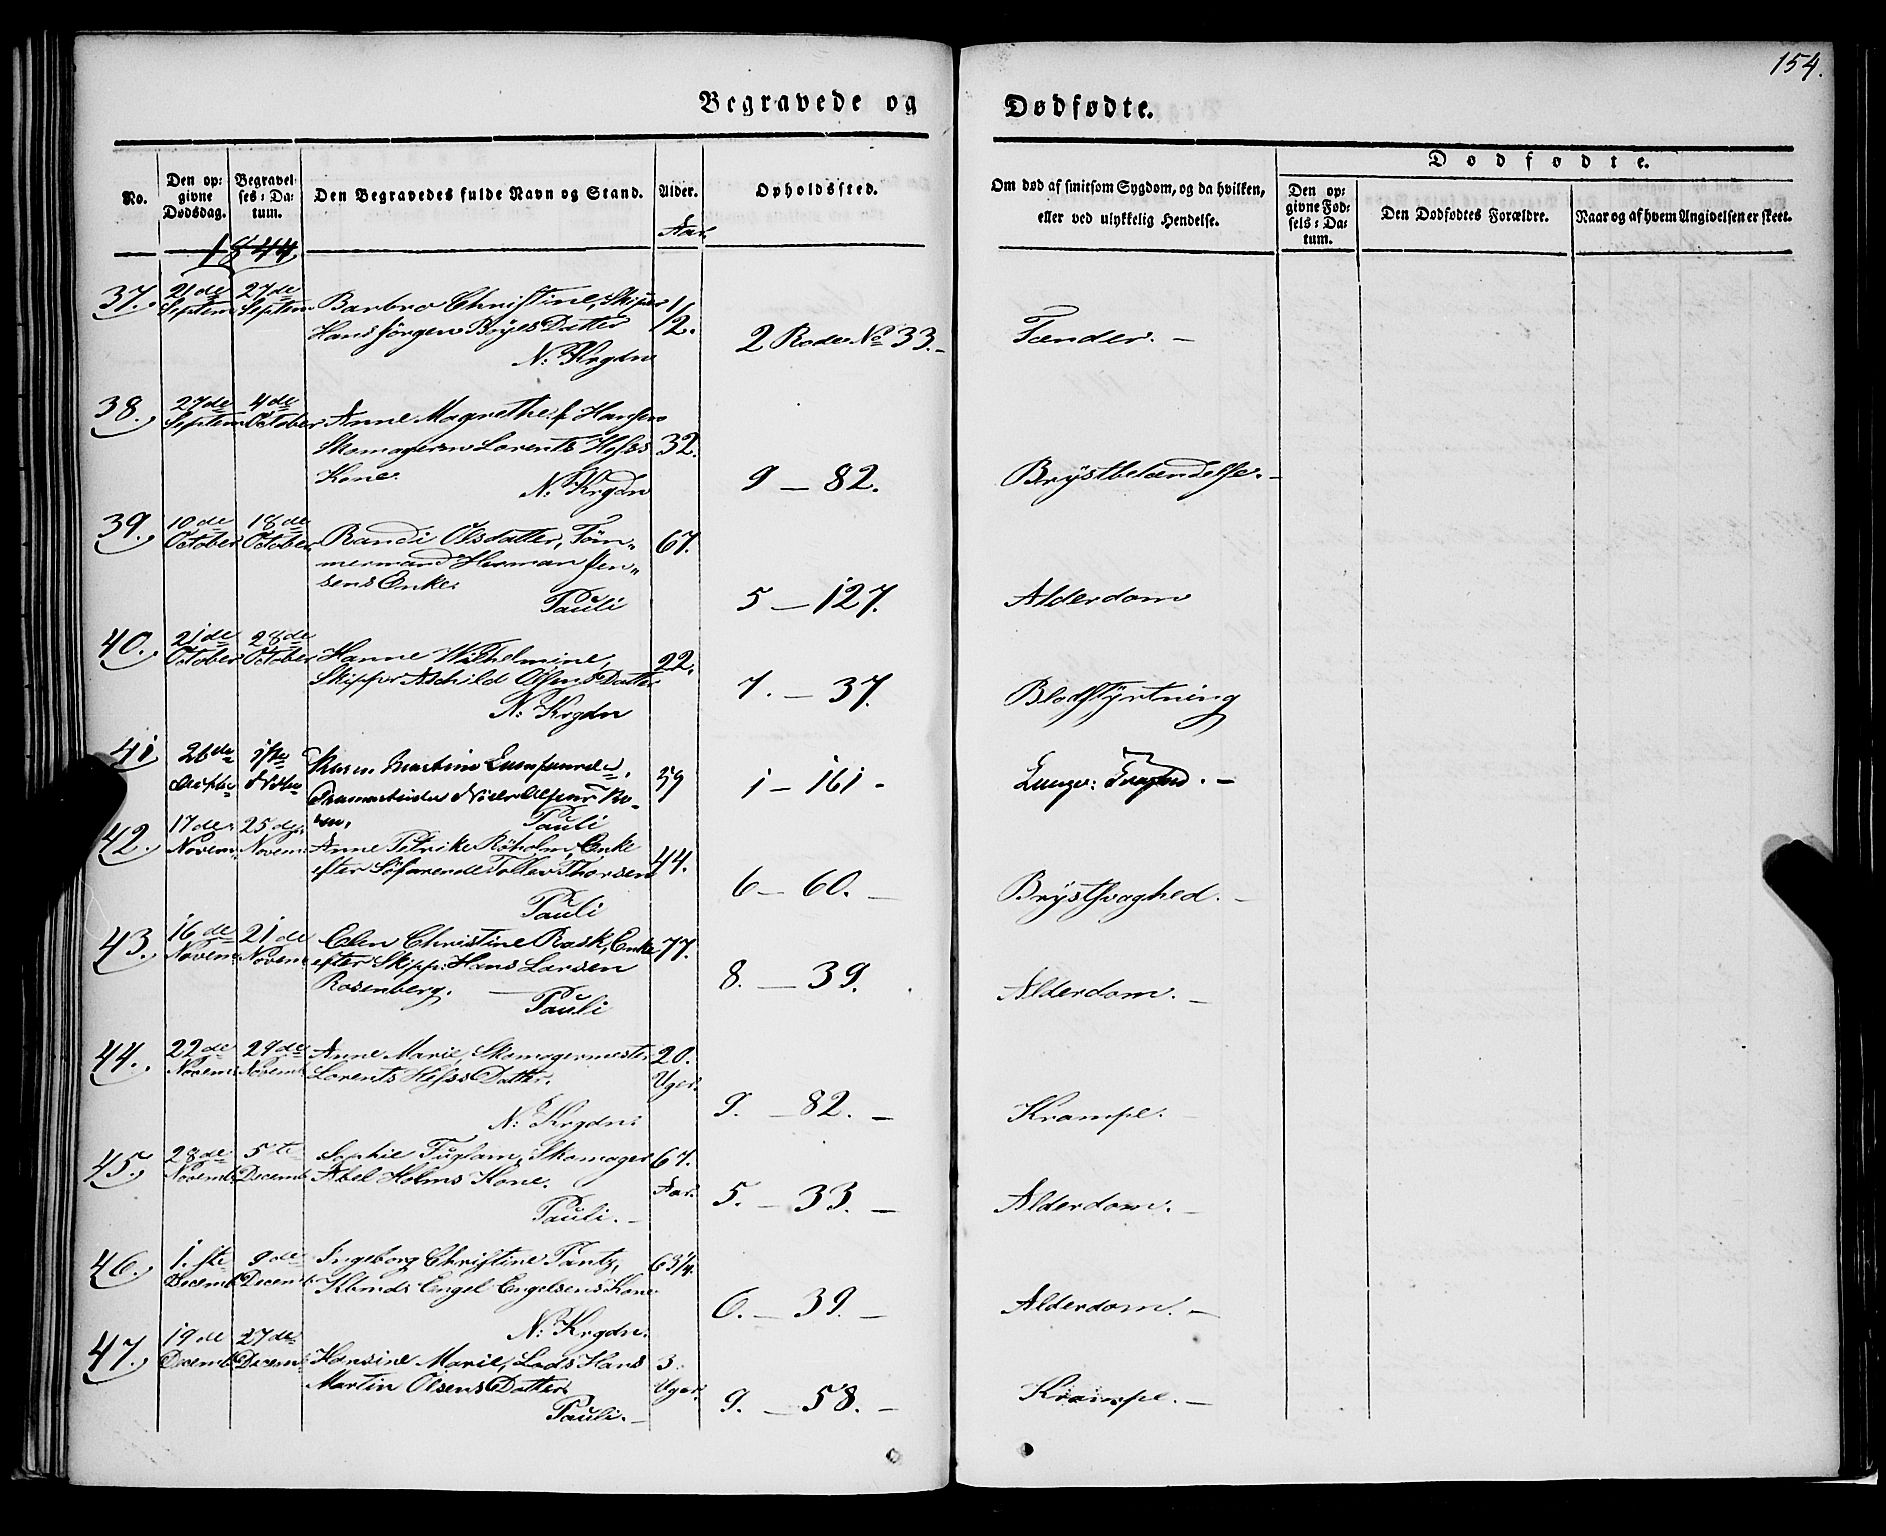 154.
Begravede og Dødfødte.
No. Den opgivne Dødsdag. Begravelses-Datum. Den Begravedes fulde Navn og Stand. Alder. Opholdssted. Om død af smitsom Sygdom, og da hvilken, eller ved ulykkelig Hendelse.
Dødfødte.
Den opgivne Fødsels-Datum. Den Dødfødtes Forældre. Naar og af hvem Angivelsen er skeet.
Aar.
1844.
37. 21de Septem 27de Septem Barbro Christine, Skiper
Hans Jörgen Böyes Datter 1/2.
N: Krgdn 2 Rode No 33. Tænder. –
38. 27de Septem 4de October Anne Magrethe f. Hansen
Skomageren Lorents Hess 32.
Kone.
N: Krgdn 9 – 82. Brÿstbetændelse. –
39. 10de October 18de October Randi Olsdatter, Töm„ 67.
mermand Herman Jen„
sens Enke.
Pauli 5 – 127. Alderdom
40. 21de October 28de October Hanne Wilhelmine, 22.
Skipper Aschild Olsens Datter
N: Krgdn 7. – 37. Blodstÿrtning
41 26de 1ste Martine
Niels Olsens Ko- 59
ne,
Pauli 1 – 161 - Lunge:
42. 17de Novem: 25de Novem: Anne Petrike Röholm, Enke
efter Söfarende Tollev Thorsen 44.
Pauli 6 – 60. – Brÿstsvaghed. –
43. 16de Novem: 21de Novem: Elen Christine Rask, Enke 77.
efter Skipp: Hans Larsen
Rosenberg. –
Pauli 8. – 39. Alderdom. –
44. 22de Novem: 29de Novemb: Anne Marie, Skomagermester 20.
Lorents Hess Datter. Uger.
N: Krgdn: 9. – 82. – Krampe.
45. 28de Novemb: 5te Decemb: Sophie Fuglam, Skomager 67.
Abel Holms Kone. Aar.
Pauli. – 5. – 33. – Alderdom. –
46. 1.ste Decemb: 9de Decemb: Ingeborg Christine Fantz, 63 1/4.
Kbmds Engel Engelsens Kone
N: Krgdn. 6. – 39. – Alderdom. –
47. 19de Decemb: 27de Decemb: Hansine Marie, Lods Hans 3.
Martin Olsens Datter. Uger.
Pauli. – 9. – 58. – Krampe. –